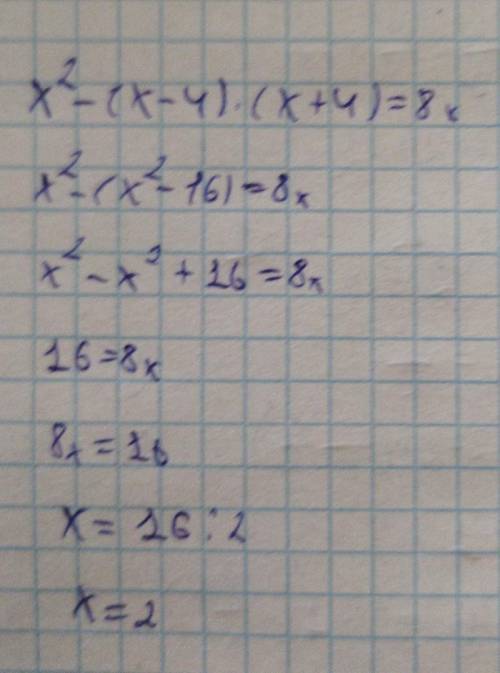 x² - (x - 4) · (x + 4) = 8x
x² - (x² - 16) = 8x
x² - x² + 16 = 8x
16 = 8x
8x = 16
x = 16 : 2
x = 2